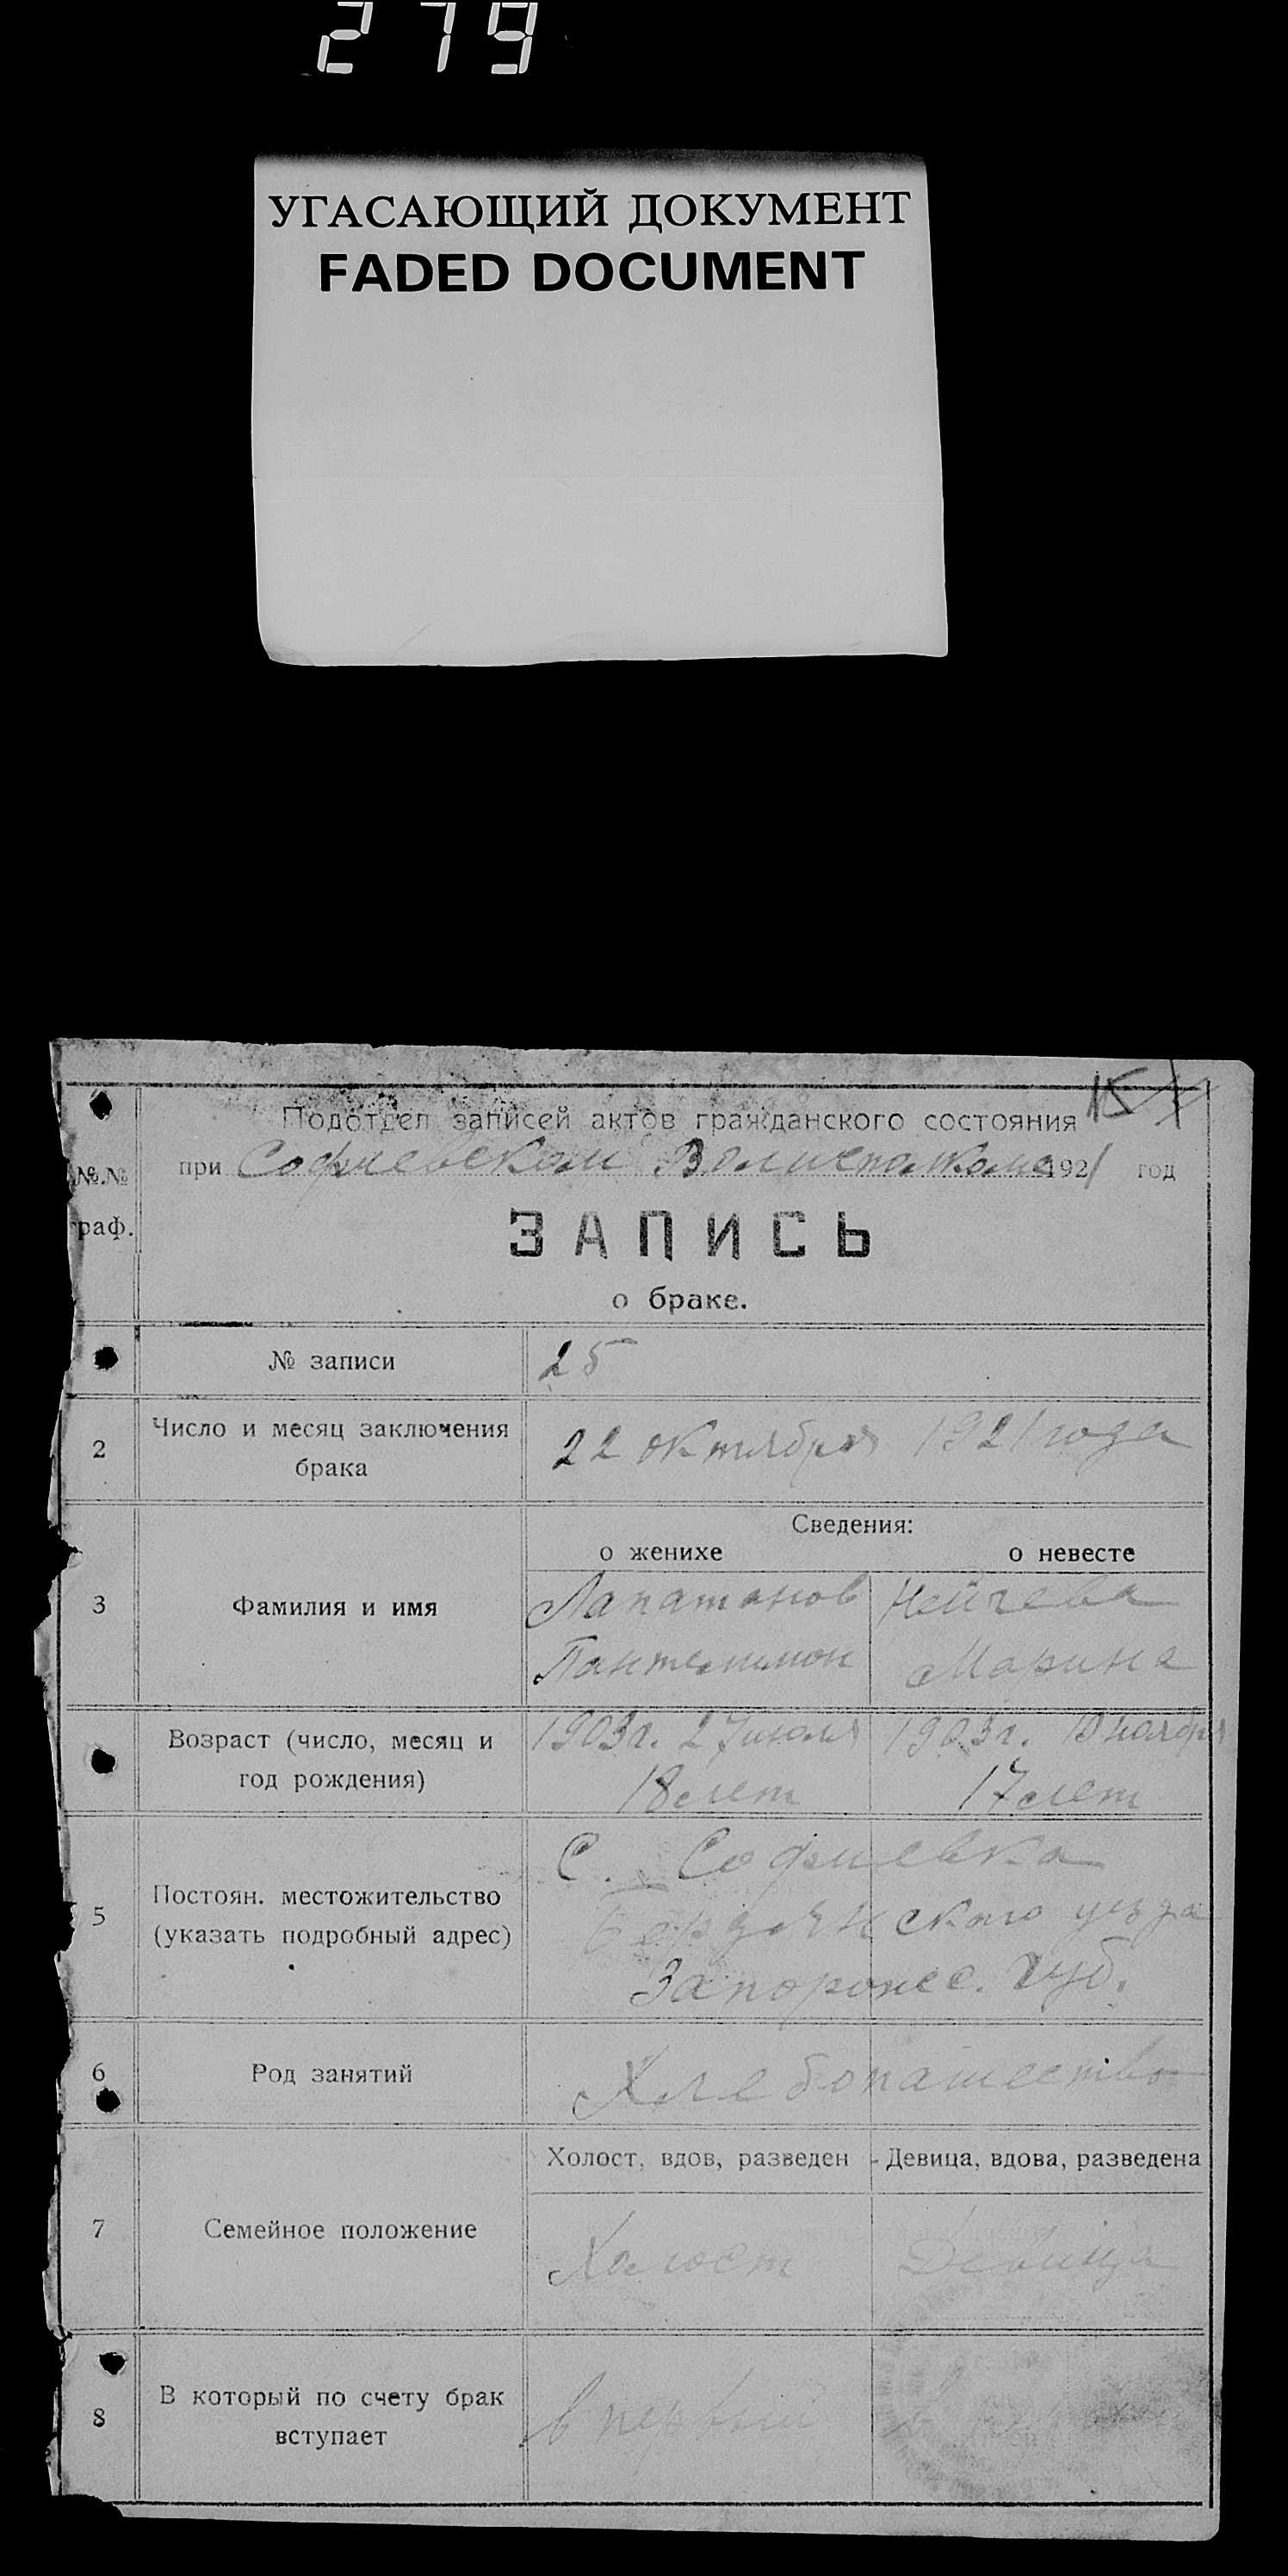 279
УГАСАЮЩИЙ ДОКУМЕНТ
FADED DOCUMENT
15
Подотдел записей актов гражданского состояния
№.№ граф.
при Софиевском Волисполкоме 1921 год
ЗАПИСЬ
о браке.
№ записи
25
2
Число и месяц заключения
брака
22 октября 1921 года
Сведения:
о женихе
о невесте
3
Фамилия и имя
Лапатанов
Пантелимон
Нейчева
Марина
Возраст (число, месяц и
год рождения)
1903г. 27 июля
18 лет
1903г. ноября
17 лет
5
Постоян. местожительство
(указать подробный адрес)
С. Софиевка
Бердянского уезда
Запорожс. Губ.
6
Род занятий
Хлебопашество
7
Семейное положение
Холост, вдов, разведен
Девица, вдова, разведена
Холост
Девица
8
В который по счету брак
вступает
в первый